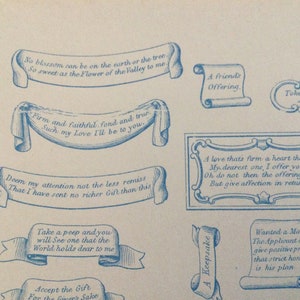 No blossom can be on the earth or the tree
So sweet as the Flower of the Valley to me
A friends
Offering
Firm and faithful, fond and true
Such my Love I'll be to you
Deem my attention not the less remiss
That I have sent no richer Gift than this
A love thats firm a heart tha
My dearest one I offer
Oh do not then the offering
But give affection in retur
Take a peep and you
will See one that the
World holds dear to me
A Keepsake
Wanted a
The Applicant
give positive
that strict hon
is his plan
Accept the Gift
For the Giver's Sake